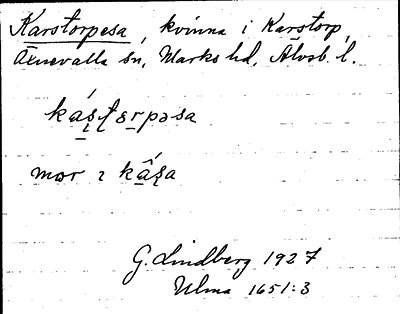 Karstorpesa, kvinna i Karstorp,
Öxnevalla sn, Marks hd, Älvsb. l.
ká̱ʂʈɛrpəsa
mor ɪ kâ̱ʂa
G. Lindberg 1927
Ulma 1651:3